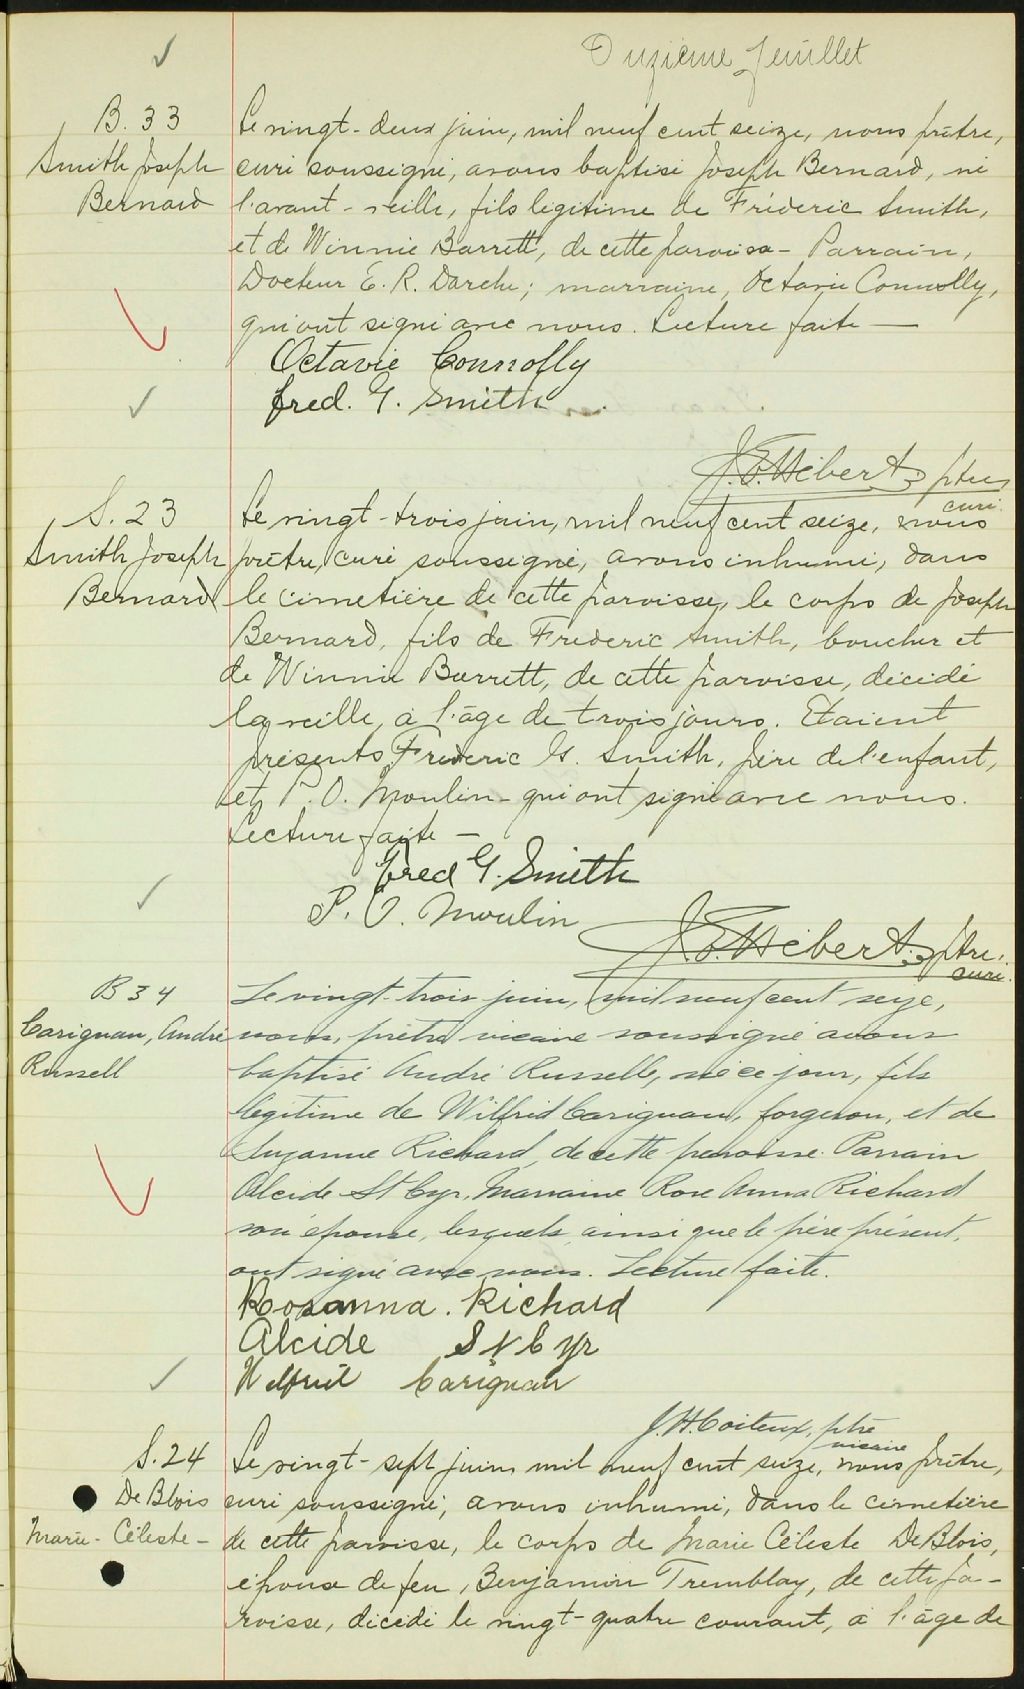 Onzième feuillet
B. 33
Smith Joseph
Bernard
Le vingt-deux juin, mil neuf cent seize, nous prêtre,
curé soussigné, avons baptisé Joseph Bernard, né
l'avant-veille, fils légitime de Fréderic Smith,
et de Winnie Barrett, de cette paroisse - Parrain,
Docteur E. R. Darche; marraine, Octavie Connolly,
qui ont signé avec nous. Lecture faite —
Octavie Connolly
Fred. G. Smith
J. E. Hébert, ptre
curé.
S. 23
Smith Joseph
Bernard
Le vingt-trois juin, mil neuf cent seize, nous
prêtre, curé soussigné, avons inhumé, dans
le cimetière de cette paroisse, le corps de Joseph
Bernard, fils de Fréderic Smith, boucher et
de Winnie Barrett, de cette paroisse, décédé
la veille, à l'âge de trois jours. Etaient
présents Frederic G. Smith, père de l'enfant,
et P. O. Moulin - qui ont signé avec nous.
Lecture faite —
Fred G. Smith
P. O. Moulin
J. E. Hébert, ptre.
curé.
B 34
Carignan, André
Russell
Le vingt-trois juin, mil neuf cent seize,
nous, prêtre vicaire soussigné avons
baptisé André Russell, né ce jour, fils
légitime de Wilfrid Carignan, forgeron, et de
Suzanne Richard, de cette paroisse. Parrain
Alcide St Cyr, Marraine Rose Anna Richard
son épouse, lesquels, ainsi que le père présent,
ont signé avec nous. Lecture faite.
Rosanna. Richard
Alcide St Cyr
Wilfrid Carignan
J. H. Coiteux, ptre
vicaire
S. 24
De Blois
Marie-Céleste-
Le vingt-sept juin mil neuf cent seize, nous prêtre,
curé soussigné, avons inhumé, dans le cimetière
de cette paroisse, le corps de Marie Céleste De Blois,
épouse de feu, Benjamin Tremblay, de cette pa-
roisse, décédé le vingt-quatre courant, à l'âge de